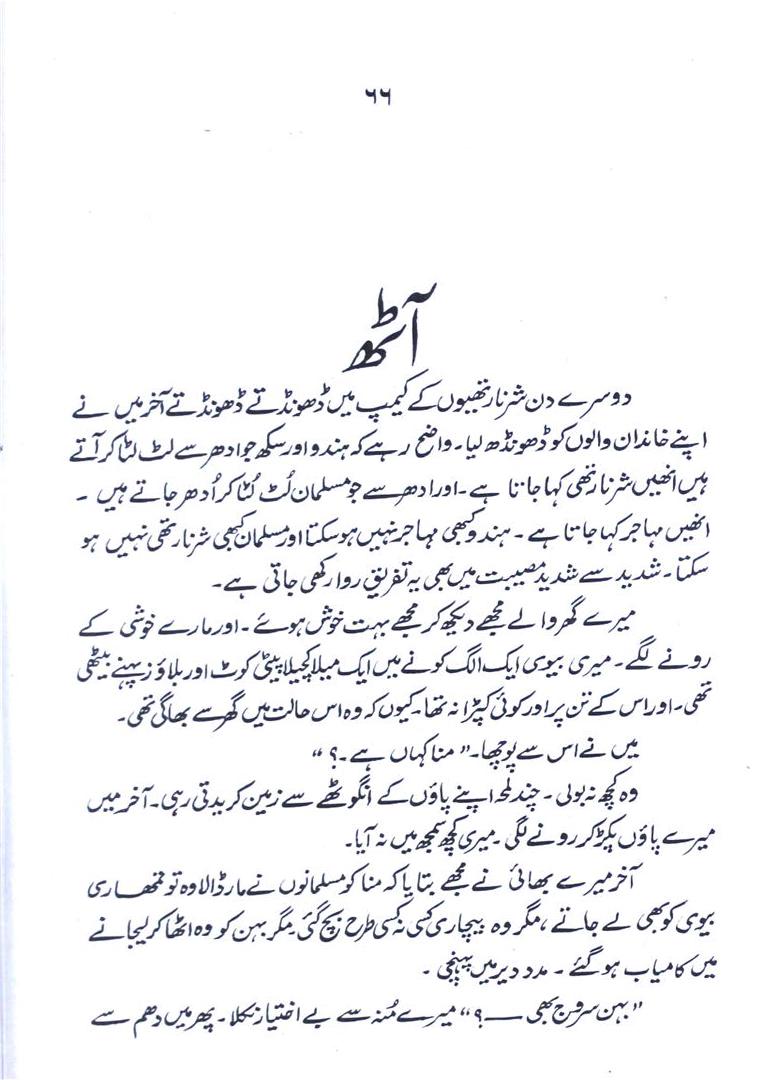 ۶۶
آٹھ
دوسرے دن شرنارتھیوں کے کیمپ میں ڈھونڈتے ڈھونڈتے آخر میں نے
اپنے خاندان والوں کو ڈھونڈھ لیا۔ واضح رہے کہ ہندو اور سکھ جو ادھر سے لٹ لٹا کر آتے
ہیں انھیں شرنارتھی کہا جاتا ہے۔ اور ادھر سے جو مسلمان لُٹ لُٹا کر اُدھر جاتے ہیں ۔
انھیں مہاجر کہا جاتا ہے ۔ ہندو کبھی مہاجر نہیں ہو سکتا اور مسلمان کبھی شرنارتھی نہیں ہو
سکتا۔ شدید سے شدید مصیبت میں بھی یہ تفریق روا رکھی جاتی ہے۔
میرے گھر والے مجھے دیکھ کر مجھے بہت خوش ہوئے ۔ اور مارے خوشی کے
رونے لگے ۔ میری بیوی ایک الگ کونے میں ایک میلا کچیلا پیٹی کوٹ اور بلاؤز پہنے بیٹھی
تھی۔ اور اس کے تن پر اور کوئی کپڑا نہ تھا۔ کیوں کہ وہ اس حالت میں گھر سے بھاگی تھی۔
میں نے اس سے پوچھا۔ ”منا کہاں ہے ۔؟ “
وہ کچھ نہ بولی ۔ چند لمحہ اپنے پاؤں کے انگوٹھے سے زمین کریدتی رہی۔ آخر میں
میرے پاؤں پکڑ کر رونے لگی ۔ میری کچھ سمجھ میں نہ آیا۔
آخر میرے بھائی نے مجھے بتایا کہ منا کو مسلمانوں نے مار ڈالا وہ تو تمھاری
بیوی کو بھی لے جاتے ، مگر وہ بیچاری کسی نہ کسی طرح بچ گئی۔ مگر بہن کو وہ اٹھا کر لیجانے
میں کامیاب ہو گئے ۔ مدد دیر میں پہنچی ۔
”بہن سروج بھی ــــ؟“ میرے مُنہ سے بے اختیار نکلا۔ پھر میں دھم سے